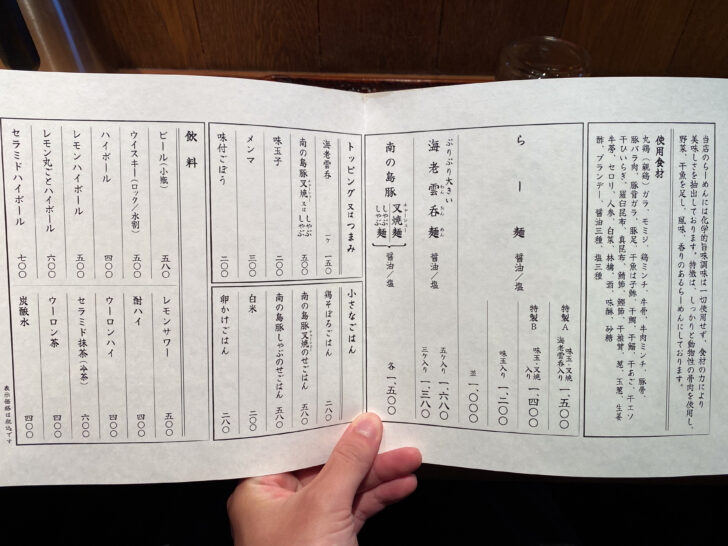 当店のらーめんには化学的旨味調味は一切使用せず、食材の力により
美味しさを抽出しております。特徴は、しっかりと動物性の骨肉を使用し、
野菜、干魚を足し、風味、香りのあるらーめんにしております。
使用食材
丸鶏（親鶏）ガラ、モミジ、鶏ミンチ、牛骨、牛肉ミンチ、豚骨、
豚バラ肉、豚背ガラ、豚足、干魚は子鯵、干鯛、干鯔、干あご、干エソ
干ひいらぎ、羅臼昆布、真昆布、鯖節、鰹節、干椎茸、葱、玉葱、生姜
牛蒡、セロリ、人参、白菜、林檎、酒、味醂、砂糖
酢、ブランデー、醤油三種、塩三種
らー麺 醤油／塩
特製A 味玉・叉焼 海老雲呑入り 一、五〇〇
特製B 味玉・叉焼入り 一、四〇〇
味玉入り 一、二〇〇
並 一、〇〇〇
ぷりぷり大きい
海老雲呑麺 わんたんめん 醤油／塩
五ヶ入り 一、六八〇
三ヶ入り 一、三八〇
南の島豚 叉焼麺 チャーシュー しゃぶしゃぶ麺 醤油／塩
各 一、五〇〇
トッピング又はつまみ
海老雲呑 一ヶ 一五〇
南の島豚叉焼又はしゃぶしゃぶ チャーシュー 五〇〇
味玉子 二〇〇
メンマ 二〇〇
味付ごぼう 二〇〇
小さなごはん
鶏そぼろごはん 二八〇
南の島豚叉焼のせごはん チャーシュー 五八〇
南の島豚しゃぶのせごはん 五八〇
白米 二〇〇
卵かけごはん 二八〇
飲料
ビール（小瓶） 五八〇
ウイスキー（ロック／水割） 五〇〇
ハイボール 四〇〇
レモンハイボール 五〇〇
レモン丸ごとハイボール 六〇〇
セラミドハイボール 七〇〇
レモンサワー 五〇〇
酎ハイ 四〇〇
ウーロンハイ 四〇〇
セラミド抹茶（冷茶） 六〇〇
ウーロン茶 四〇〇
炭酸水 四〇〇
表示価格は税込です